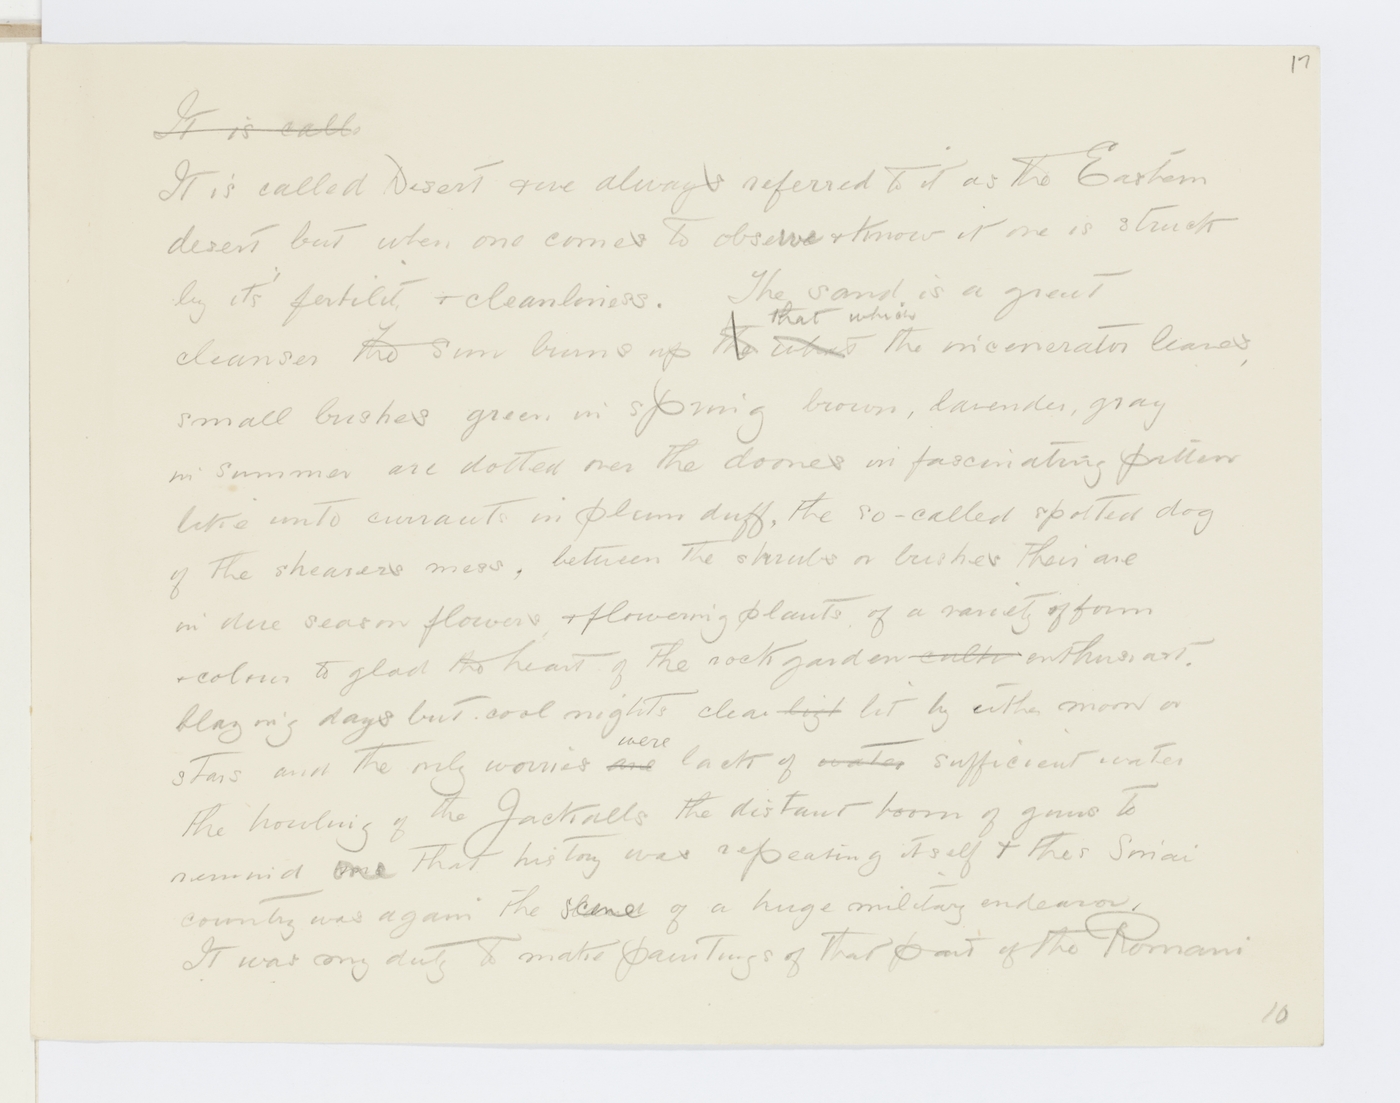 17
It is call
It is called Desert & we always referred to it as the Eastern
desert but when one comes to observe & know it one is struck
by it's fertility & cleanliness. The sand is a great
that which
cleanser the sun burns up the what the incenerator leaves,
small bushes green in spring brown, lavender, gray
in summer are dotted over the doones in fascinating pattern
like unto currants in plum duff, the so-called spotted dog
of the shearers mess, between the shrubs or bushes their are
in due season flowers, & flowering plants of a variety of form
& colour to glad the heart of the rock garden cultu enthusiast.
blazoing days but cool nights clear light lit by either moon or
were
stars and the only worries are lack of water sufficient water
the howling of the Jackalls the distant boom of guns to
remind one that history was repeating itself & this Sinai
country was again the scene of a huge military endeavor,
It was my duty to make paintings of that part of the Romani
10